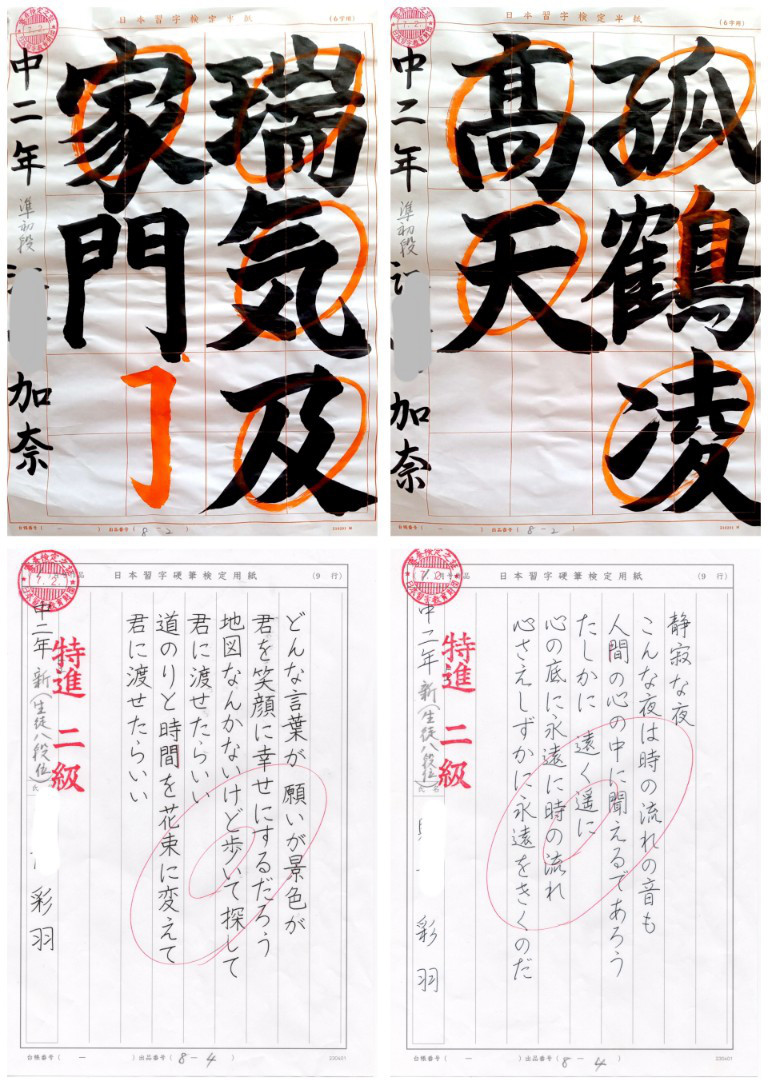 日本習字検定半紙
(6字用)
瑞気及
家門
中二年 準初段
加奈
台帳番号( - ) 出品番号( 8-2 )
日本習字検定半紙
(6字用)
孤鶴凌
高天
中二年 準初段
加奈
台帳番号( - ) 出品番号( 8-2 )
日本習字硬筆検定用紙
(9 行)
どんな言葉が 願いが景色が
君を笑顔に幸せにするだろう
地図なんかないけど歩いて探して
君に渡せたらいい
道のりと時間を花束に変えて
君に渡せたらいい
特進 二級
中二年 新(生徒八段位)
彩羽
台帳番号( - ) 出品番号( 8-4 )
日本習字硬筆検定用紙
(9 行)
静寂な夜
こんな夜は時の流れの音も
人間の心の中に聞えるであろう
たしかに 遠く遥に
心の底に永遠に時の流れ
心さえしずかに永遠をきくのだ
特進 二級
中二年 新(生徒八段位)
彩羽
台帳番号( - ) 出品番号( 8-4 )